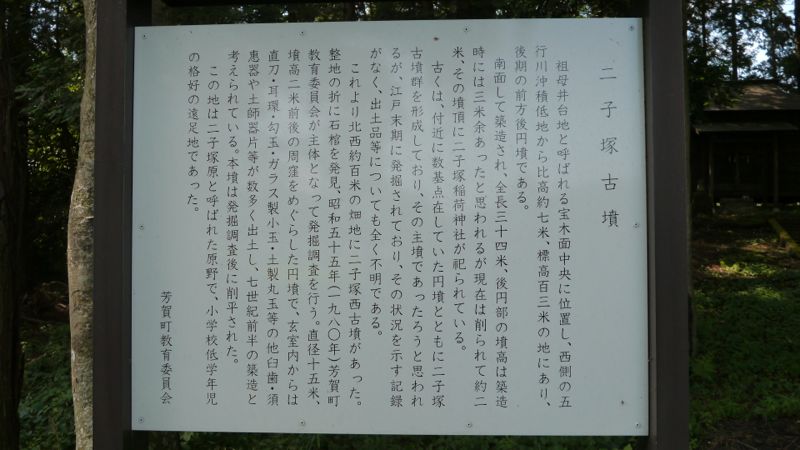 二子塚古墳
祖母井台地と呼ばれる宝木面中央に位置し、西側の五
行川沖積低地から比高約七米、標高百三米の地にあり、
後期の前方後円墳である。
南面して築造され、全長三十四米、後円部の墳高は築造
時には三米余あったと思われるが現在は削られて約二
米、その墳頂に二子塚稲荷神社が祀られている。
古くは、付近に数基点在していた円墳とともに二子塚
古墳群を形成しており、その主墳であったろうと思われ
るが、江戸末期に発掘されており、その状況を示す記録
がなく、出土品等についても全く不明である。
これより北西約百米の畑地に二子塚西古墳があった。
整地の折に石棺を発見、昭和五十五年(一九八〇年)芳賀町
教育委員会が主体となって発掘調査を行う。直径十五米、
墳高二米前後の周窪をめぐらした円墳で、玄室内からは
直刀・耳環・勾玉・ガラス製小玉・土製丸玉等の他臼歯・須
恵器や土師器片等が数多く出土し、七世紀前半の築造と
考えられている。本墳は発掘調査後に削平された。
この地は二子塚原と呼ばれた原野で、小学校低学年児
の格好の遠足地であった。
芳賀町教育委員会